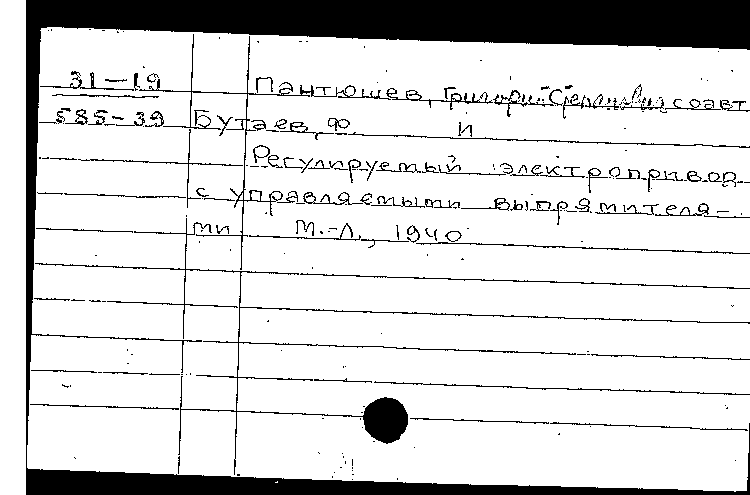 31-19
585-39
Пантюшев, Григорий Степанович соавт
Бутаев, Ф. и
Регулируемый электропривод
с управляемыми выпрямителя-
ми М.-Л., 1940